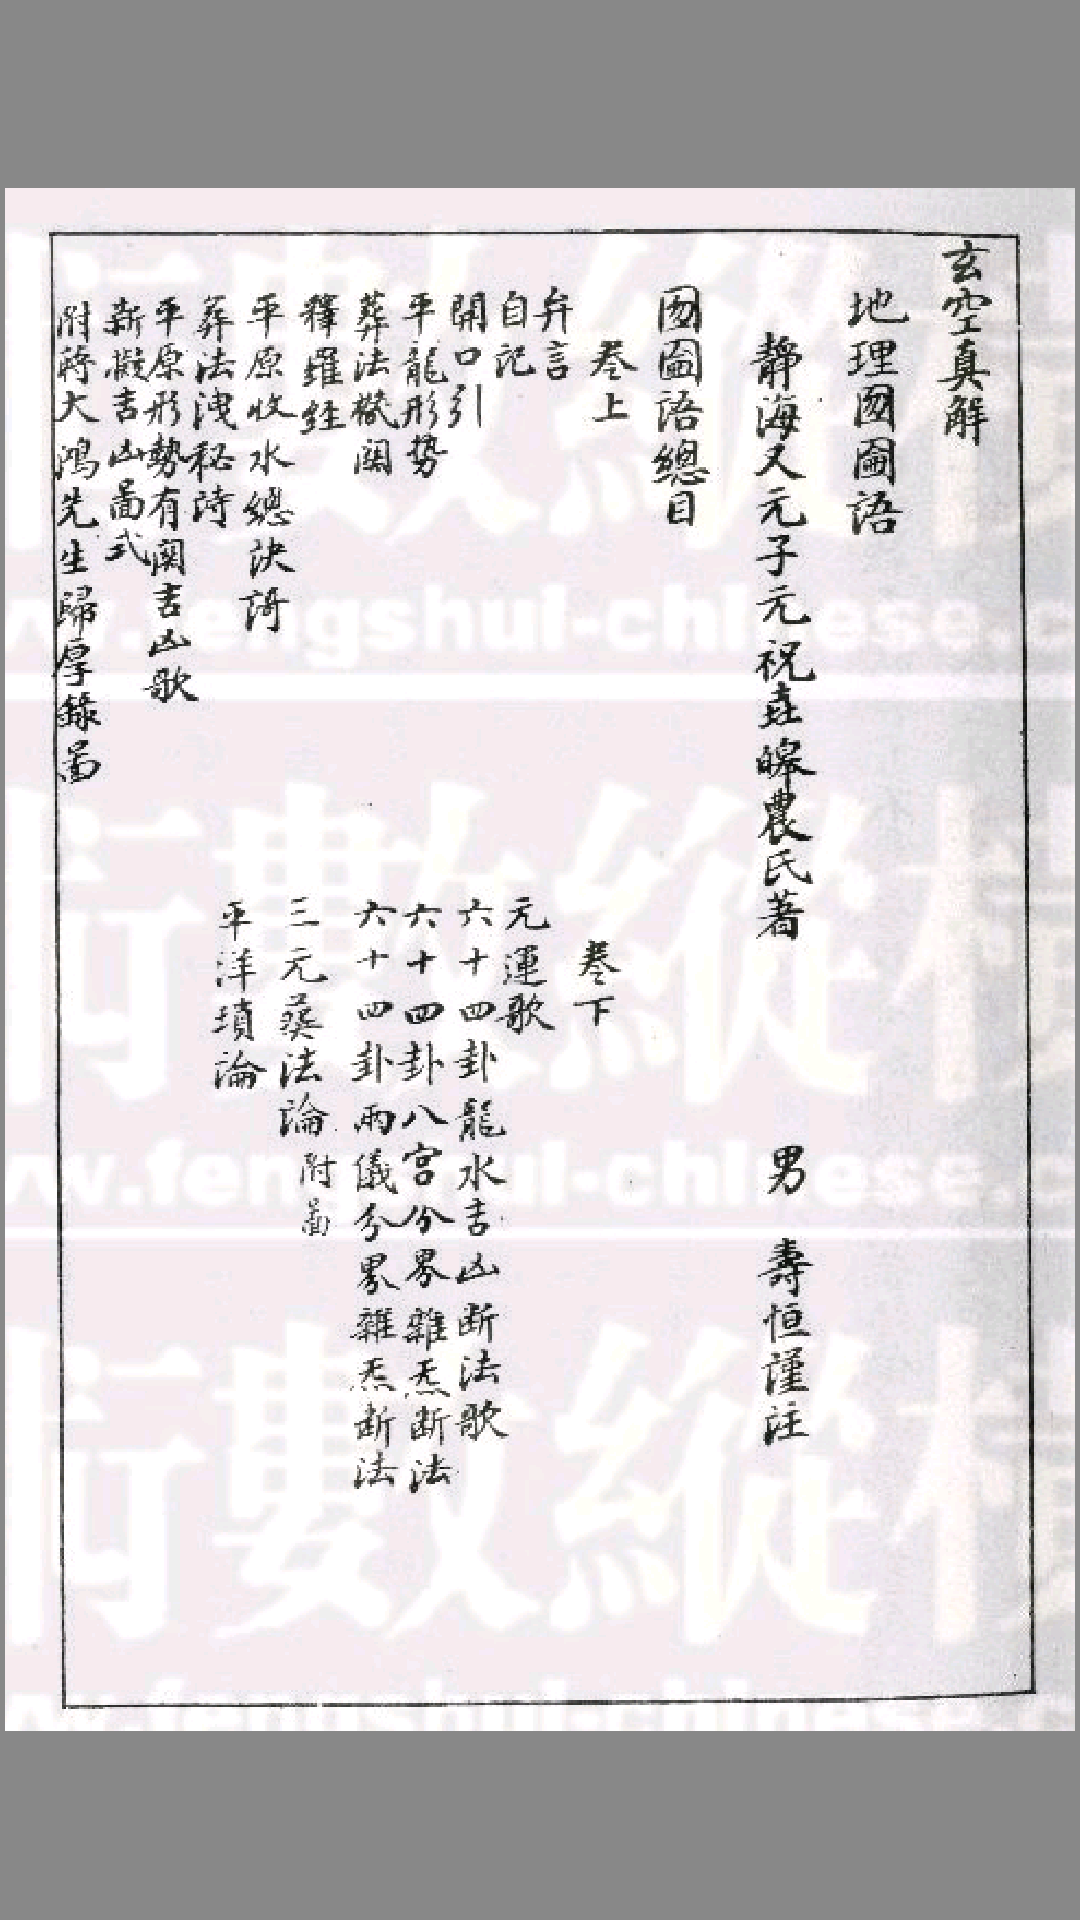 玄空真解
地理囫圇語
靜海又元子元祝垚皞農氏著 男 壽恒謹注
囫圇語總目
卷上
弁言
自記
開口引
平龍形势
葬法楸闗
釋羅経
平原收水總決謌
葬法洩秘詩
平原形勢有闗吉凶歌
新擬吉凶啚式
附蔣大鴻先生歸厚錄啚
卷下
元運歌
六十四卦龍水吉凶断法歌
六十四卦八宮分界雜炁断法
六十四卦兩儀分界雜炁断法
三元葬法論 附啚
平洋瑣論
術數縱橫
www.fengshui-chinese.c
術數縱橫
www.fengshui-chinese.c
術數縱橫
www.fengshui-chinese.c